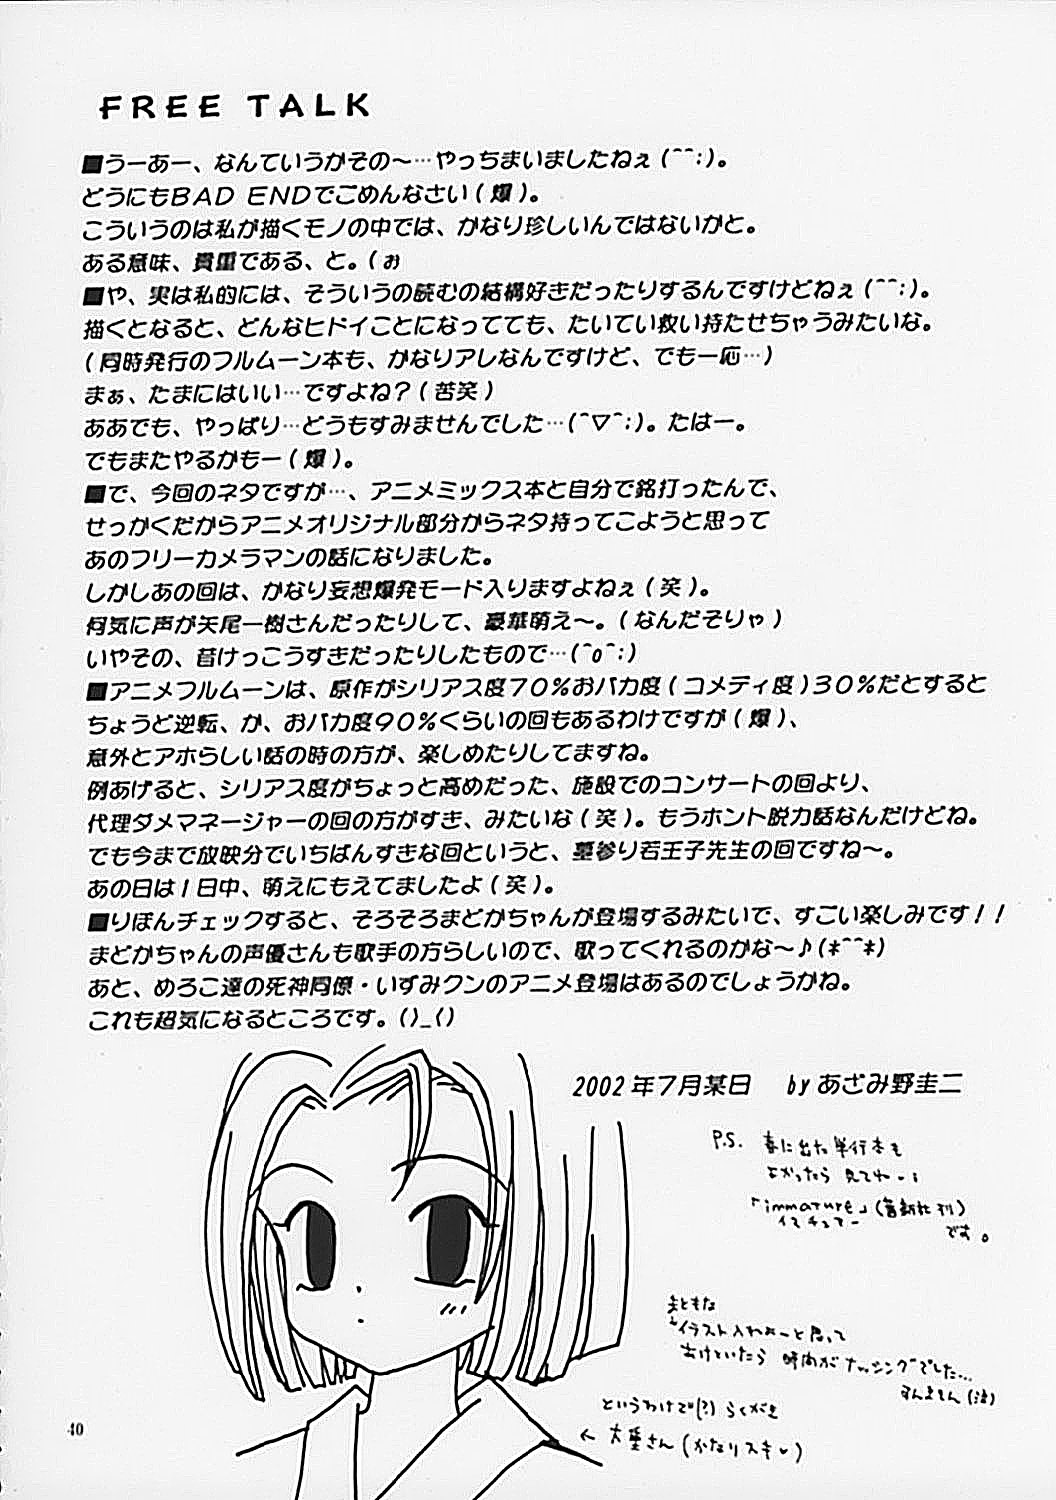 FREE TALK
■うーあー、なんていうかその～…やっちまいましたねぇ(^^;)。
どうにもBAD ENDでごめんなさい(爆)。
こういうのは私が描くモノの中では、かなり珍しいんではないかと。
ある意味、貴重である、と。(ぉ
■や、実は私的には、そういうの読むの結構好きだったりするんですけどねぇ(^^;)。
描くとなると、どんなヒドイことになってても、たいてい救い持たせちゃうみたいな。
(同時発行のフルムーン本も、かなりアレなんですけど、でも一応…)
まぁ、たまにはいい…ですよね?(苦笑)
ああでも、やっぱり…どうもすみませんでした…(^▽^;)。たはー。
でもまたやるかもー(爆)。
■で、今回のネタですが…、アニメミックス本と自分で銘打ったんで、
せっかくだからアニメオリジナル部分からネタ持ってこようと思って
あのフリーカメラマンの話になりました。
しかしあの回は、かなり妄想爆発モード入りますよねぇ(笑)。
何気に声が矢尾一樹さんだったりして、豪華萌え～。(なんだそりゃ)
いやその、昔けっこうすきだったりしたもので…(^o^;)
■アニメフルムーンは、原作がシリアス度70%おバカ度(コメディ度)30%だとすると
ちょうど逆転、か、おバカ度90%くらいの回もあるわけですが(爆)、
意外とアホらしい話の時の方が、楽しめたりしてますね。
例あげると、シリアス度がちょっと高めだった、施設でのコンサートの回より、
代理ダメマネージャーの回の方がすき、みたいな(笑)。もうホント脱力話なんだけどね。
でも今まで放映分でいちばんすきな回というと、墓参り若王子先生の回ですね～。
あの日は1日中、萌えにもえてましたよ(笑)。
■りぼんチェックすると、そろそろまどかちゃんが登場するみたいで、すごい楽しみです!!
まどかちゃんの声優さんも歌手の方らしいので、歌ってくれるのかな～♪(*^^*)
あと、めろこ達の死神同僚・いずみクンのアニメ登場はあるのでしょうかね。
これも超気になるところです。()_()
2002年7月某日 byあざみ野圭二
P.S. 春に出た単行本も
よかったら 見てね
「immature」(茜新社刊)
イマチュアー
です。
まともな
イラスト入れよーと思って
あけといたら 時間がナッシングでした…
すんません(泣)
というわけで(?)らくがき
← 大重さん(かなりスキ♥)
40